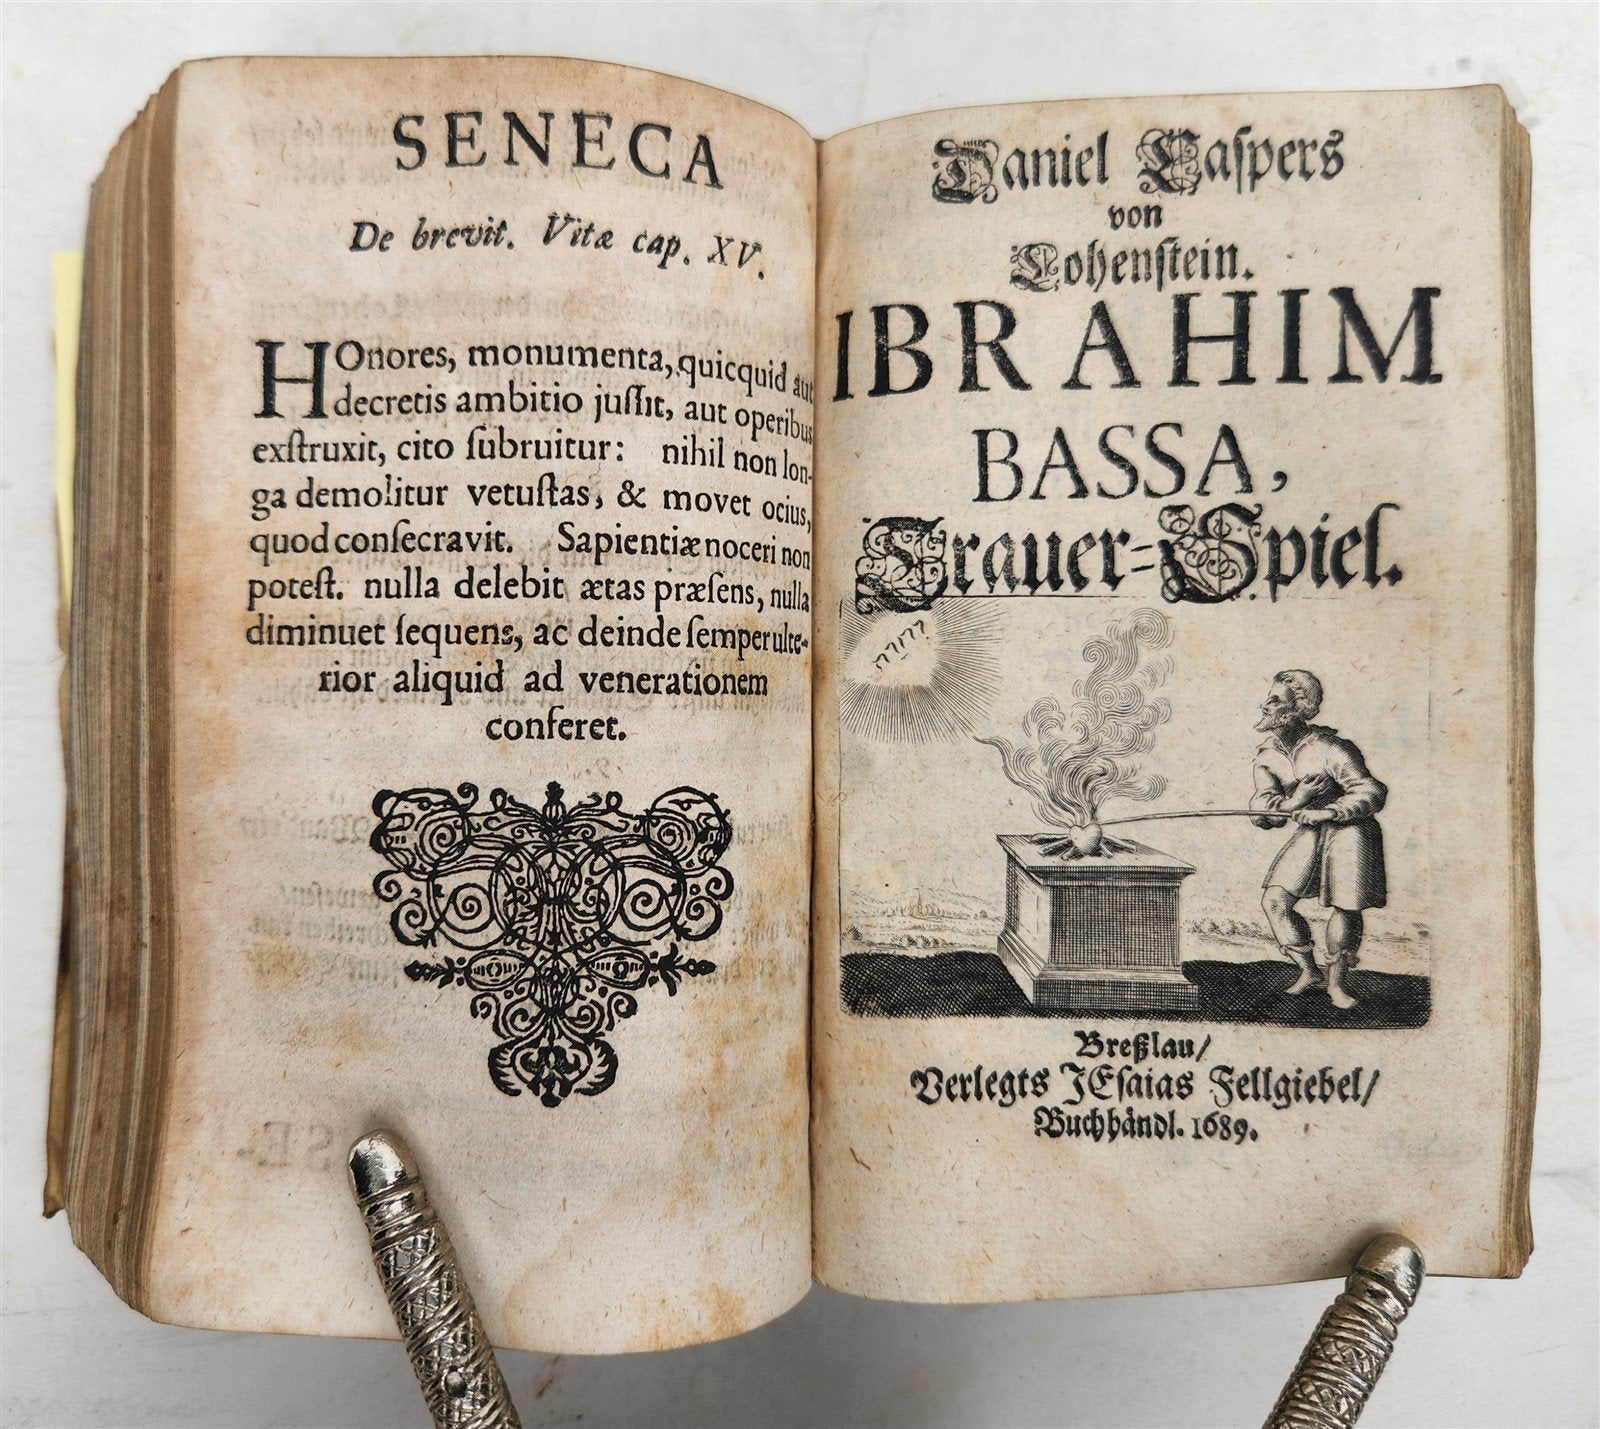 SENECA
De brevit. Vitæ cap. XV.
HOnores, monumenta, quicquid aut
decretis ambitio juſſit, aut operibus
exſtruxit, cito ſubruitur: nihil non lon-
ga demolitur vetuſtas, & movet ocius,
quod conſecravit. Sapientiæ noceri non
poteſt. nulla delebit ætas præſens, nulla
diminuet ſequens, ac deinde ſemper ulte-
rior aliquid ad venerationem
conferet.
Daniel Caſpers
von
Lohenſtein.
IBRAHIM
BASSA,
Trauer-Spiel.
יהוה
Breßlau/
Verlegts JEſaias Fellgiebel/
Buchhändl. 1689.